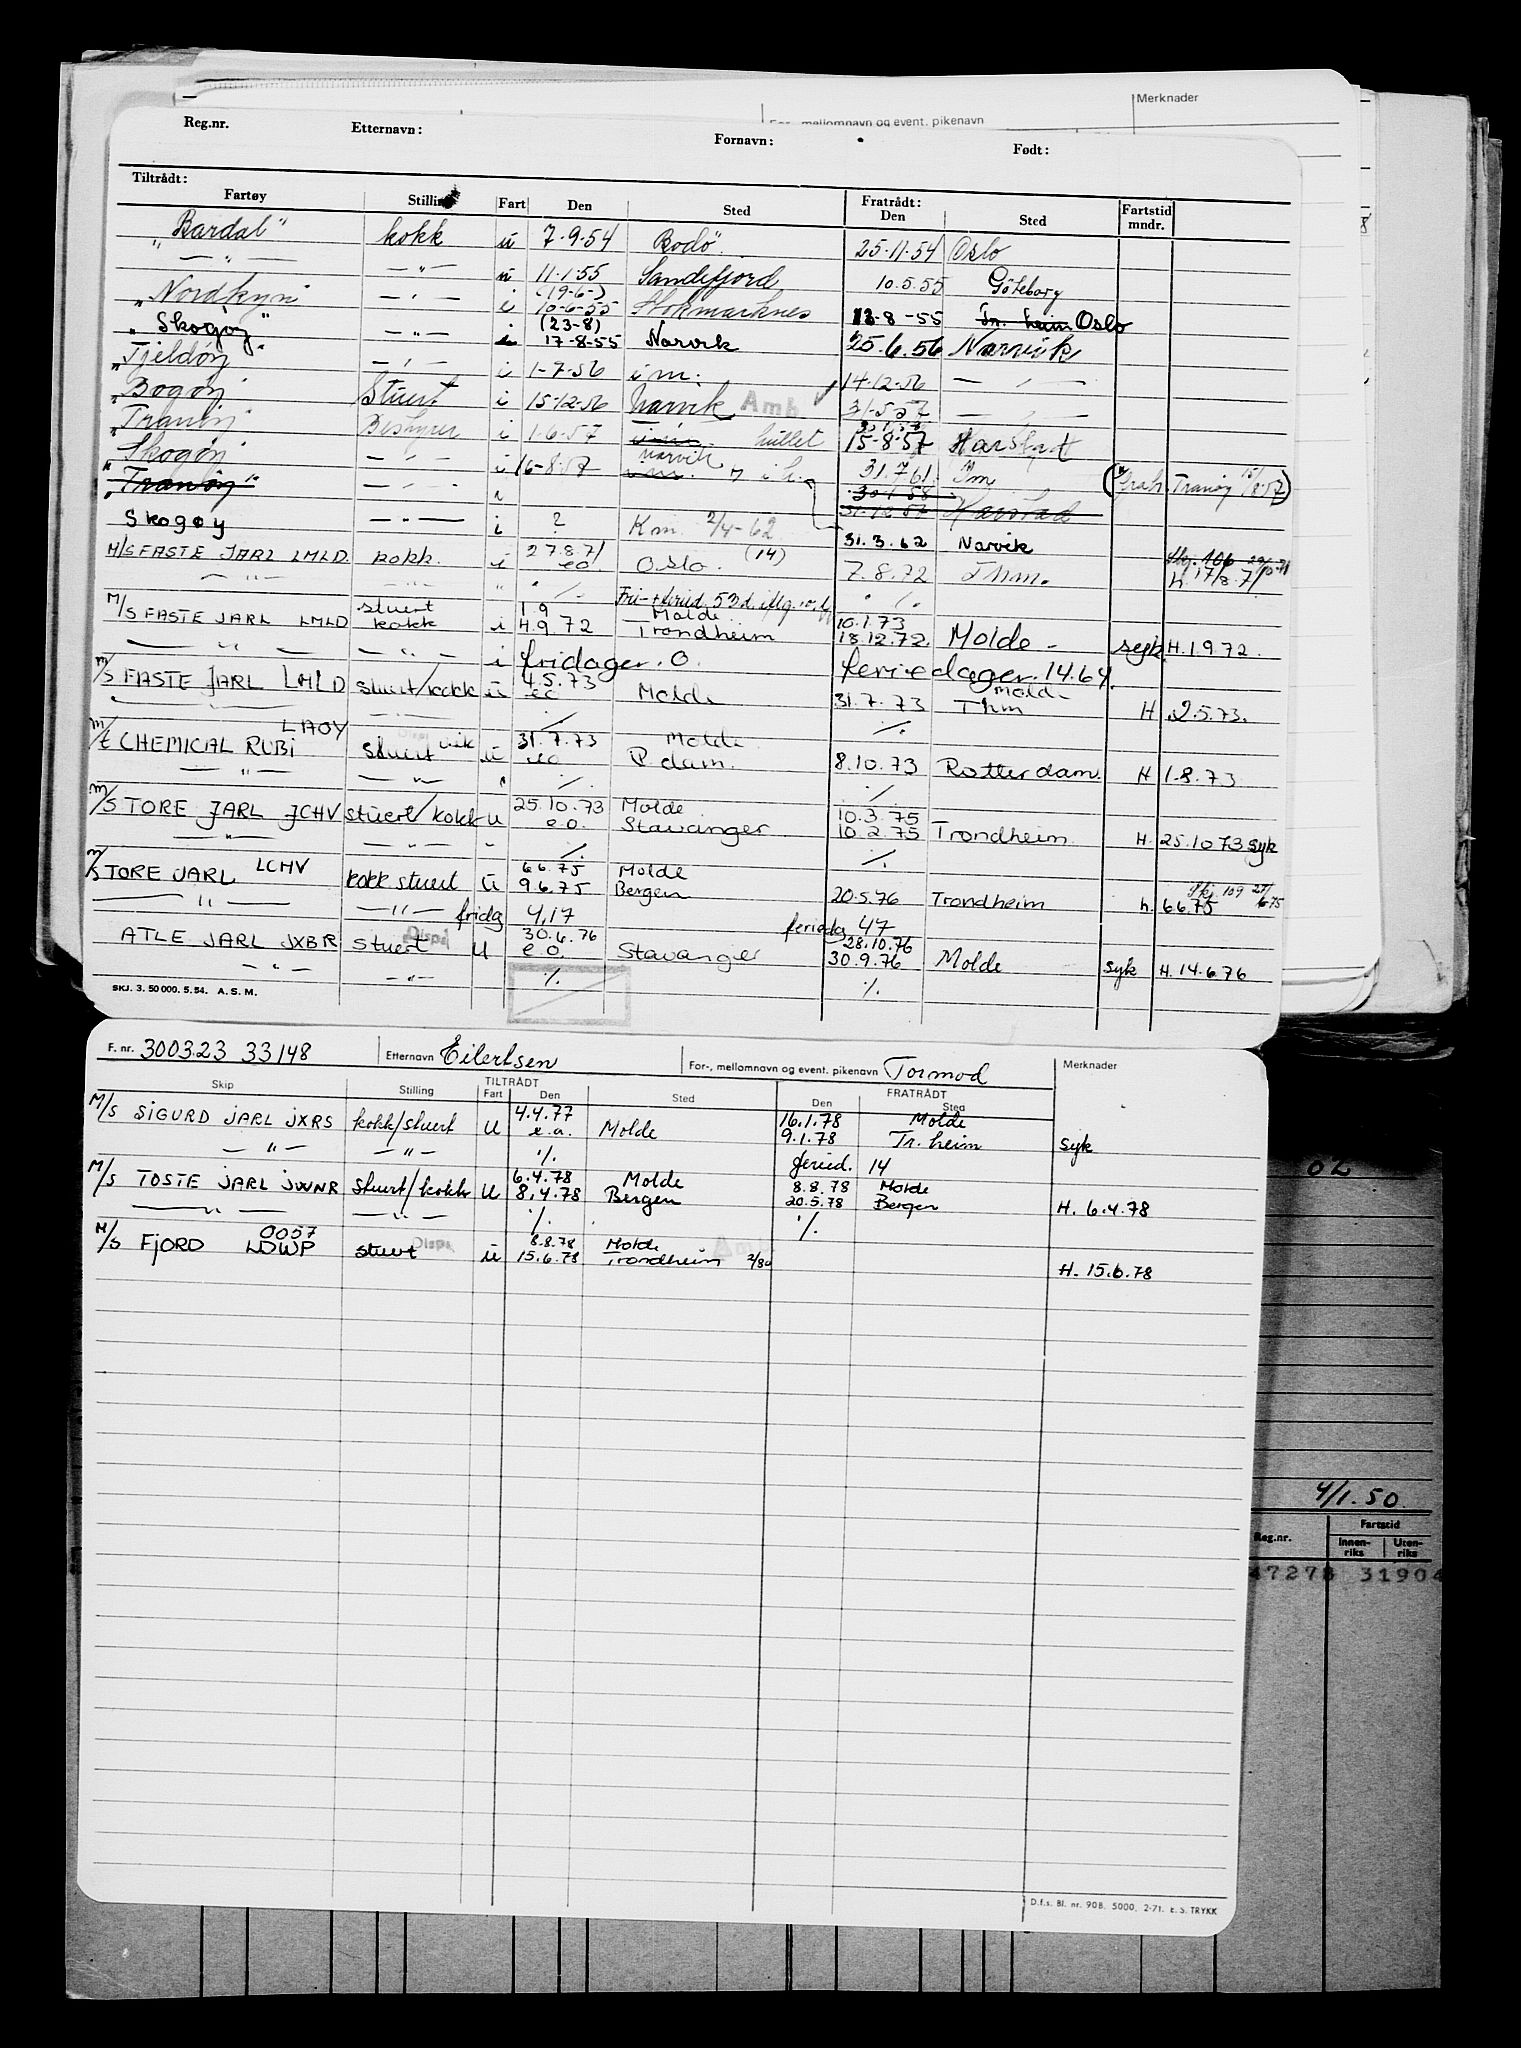 Merknader
For-, mellomnavn og event. pikenavn
Reg.nr. Etternavn: Fornavn: Født:
Tiltrådt: Fratrådt:
Fartøy Stilling Fart Den Sted Den Sted Fartstid mndr.
"Bardal" kokk u 7-9-54 Bodø 25-11-54 Oslo
— " — — " — u 11-1-55 Sandefjord 10.5.55 Göteborg
(19-6-)
"Nordkyn" — " — i 10-6-55 Stokmarknes 13-8-55 Tr. heim Oslo
(23-8)
"Skogøy" — " — i 17-8-55 Narvik 25.6.56 Narvik
"Tjeldøy" — " — i 1-7-56 i m. 14-12-56 — " —
"Bogøy" Stuert i 15-12-56 Narvik Amb 31-5-57 — " —
"Tranøy" Bestyrer i 1-6-57 hullet 15-8-57 Harstad
Narvik
"Skogøy" — " — i 16-8-57 31.7.61 Im (fratr. Tranøy 15/8-57)
30/1-58
"Tranøy" — " — i 31.12.57 Harstad
Skogøy — " — i ? Km 2/4-62 31.3.62 Narvik
27.8.71 (14) Skj. 106 29/10-71
M/S FASTE JARL LMLD. kokk. i eo. Oslo. 7.8.72 Thm. h. 17/8.71
— " — " " ./. Fri-+feried. 53 d. " ./.
stuert 1.9 Molde 10.1.73
M/S FASTE JARL LMLD kokk i 4.9.72 Trondheim 18.12.72 Molde - syk H.1.9.72.
— " — — " — i fridager. 0. feriedager. 14.64.
4.5.73 Molde
M/S FASTE JARL LMLD stuert/kokk u eo Molde 31.7.73 Thm H 2.5.73.
— " — — " — ./. ./.
LAOY 31.7.73 Molde
M/t CHEMICAL RUBI stuert u eo R.dam. 8.10.73 Rotterdam H 1-8.73
— " — — " — " ./. ./.
25.10.73 Molde 10.3.75
M/S TORE JARL JCHV stuert/kokk u e.o. Stavanger 10.2.75 Trondheim H. 25.10.73 syk
— " — — " — " ./. ./.
6.6.75 Molde Skj 109 27/6-75
M/S TORE JARL LCHV kokk stuert u 9.6.75 Bergen 20.5.76 Trondheim h. 6.6.75
— " — — " — fridg 4,17 feriedg 47
Disp. 30.6.76 28.10.76
ATLE JARL JXBR stuert U e.o. Stavanger 30.9.76 Molde syk H. 14.6.76
— " — — " — ./. ./.
SKJ. 3. 50 000. 5.54. A.S.M.
F. nr. 300323 33148 Etternavn Eilertsen For-, mellomnavn og event. pikenavn Tormod Merknader
TILTRÅDT FRATRÅDT
Skip Stilling Fart Den Sted Den Sted
4.4.77 16.1.78 Molde
M/S SIGURD JARL JXRS kokk/stuert U e.o. Molde 9.1.78 Tr.heim syk
— " — — " — ./. feried. 14
6.4.78 Molde 8.8.78 Molde
M/S TOSTE JARL JWNR stuert/kokk U 8.4.78 Bergen 20.5.78 Bergen H. 6.4.78
— " — — " — ./. ./.
0057 Disp. 8.8.78 Molde
M/S FJORD LDWP stuert u 15.6.78 Trondheim 2/80 H. 15.6.78
D.f.s. Bl. nr. 90B. 5000. 2-71. E.S. TRYKK
02
4/1.50.
Reg.nr. Fartstid
Innenriks Utenriks
47278 31904